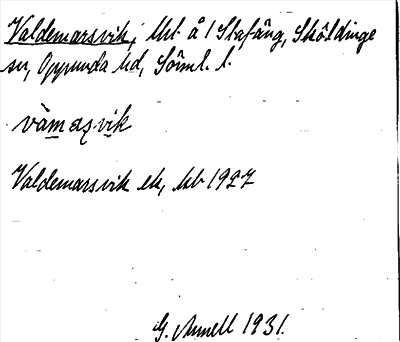 Valdemarsvik, tkt. å 1 Stafäng, Sköldinge
sn, Oppunda hd, Söml. l.
vàmaṣvik
Valdemarsvik ek, kb 1927
G. Annell 1931.